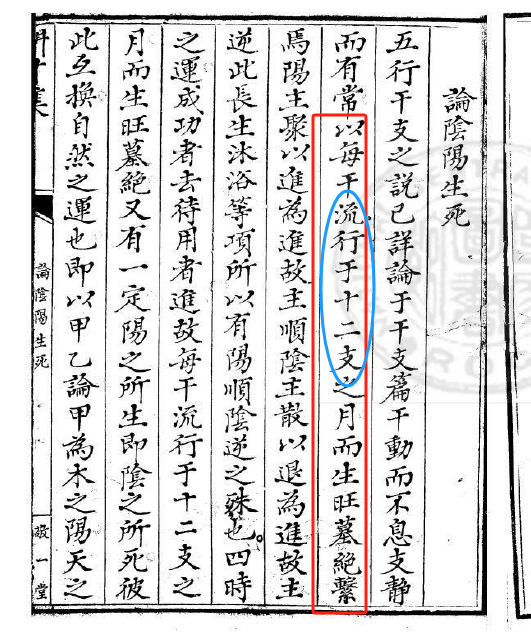 論陰陽生死
五行干支之説已詳論于干支篇干動而不息支靜
而有常以每干流行于十二支之月而生旺墓絶繫
焉陽主聚以進為進故主順陰主散以退為進故主
逆此長生沐浴等項所以有陽順陰逆之殊也四時
之運成功者去待用者進故每干流行于十二支之
月而生旺墓絶又有一定陽之所生即陰之所死彼
此互換自然之運也即以甲乙論甲為木之陽天之
論陰陽生死
敬一堂